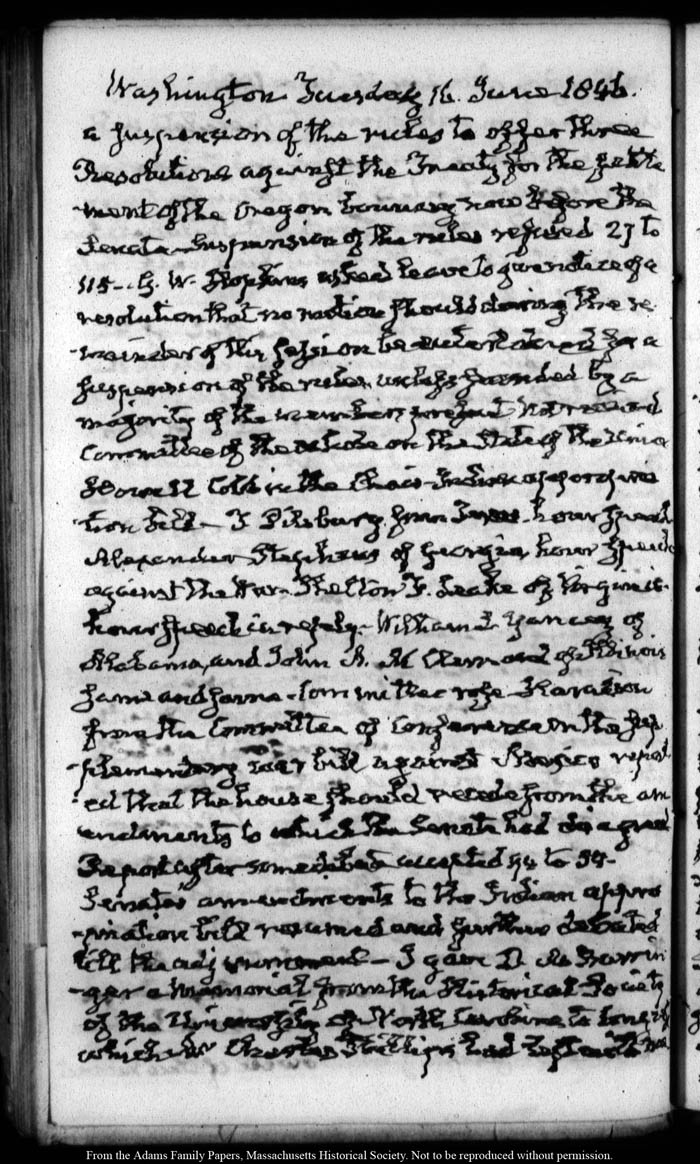 Washington Tuesday 16. June 1846.
a suspension of the rules to offer three
Resolutions against the Treaty for the settle
-ment of the Oregon boundary now before the
Senate. Suspension of the rules refused 27 to
115 - G. W. Hopkins asked leave to give notice of a
resolution that no motion should during the re-
-mainder of this session be entertained for a
suspension of the rules unless seconded by a
majority of the members present. Not received
Committee of the whole on the State of the Union
Howell Cobb in the Chair. Indian appropria
tion bill - T Pilsbury from Texas. hour speech
Alexander Stephens of Georgia, hour speech
against the War. Shelton F. Leake of Virginia.
hour speech in reply. William L Yancey of
Alabama, and John A. McClernand of Illinois
same and same. Committee rose. Haralson
from the Committee of Conference on the sup
-plementary war bill against Mexico report
-ed that the house should recede from the am
endments to which the Senate had disagreed
Report after some debate accepted to
Senate's amendments to the Indian appro
-priation bill resumed and further debated
till the adjournment - I gave D. M. Barrin
-ger a Memorial from the Historical Society
of the University of North Carolina to Congress
which Mr Charles Phillips had left with me